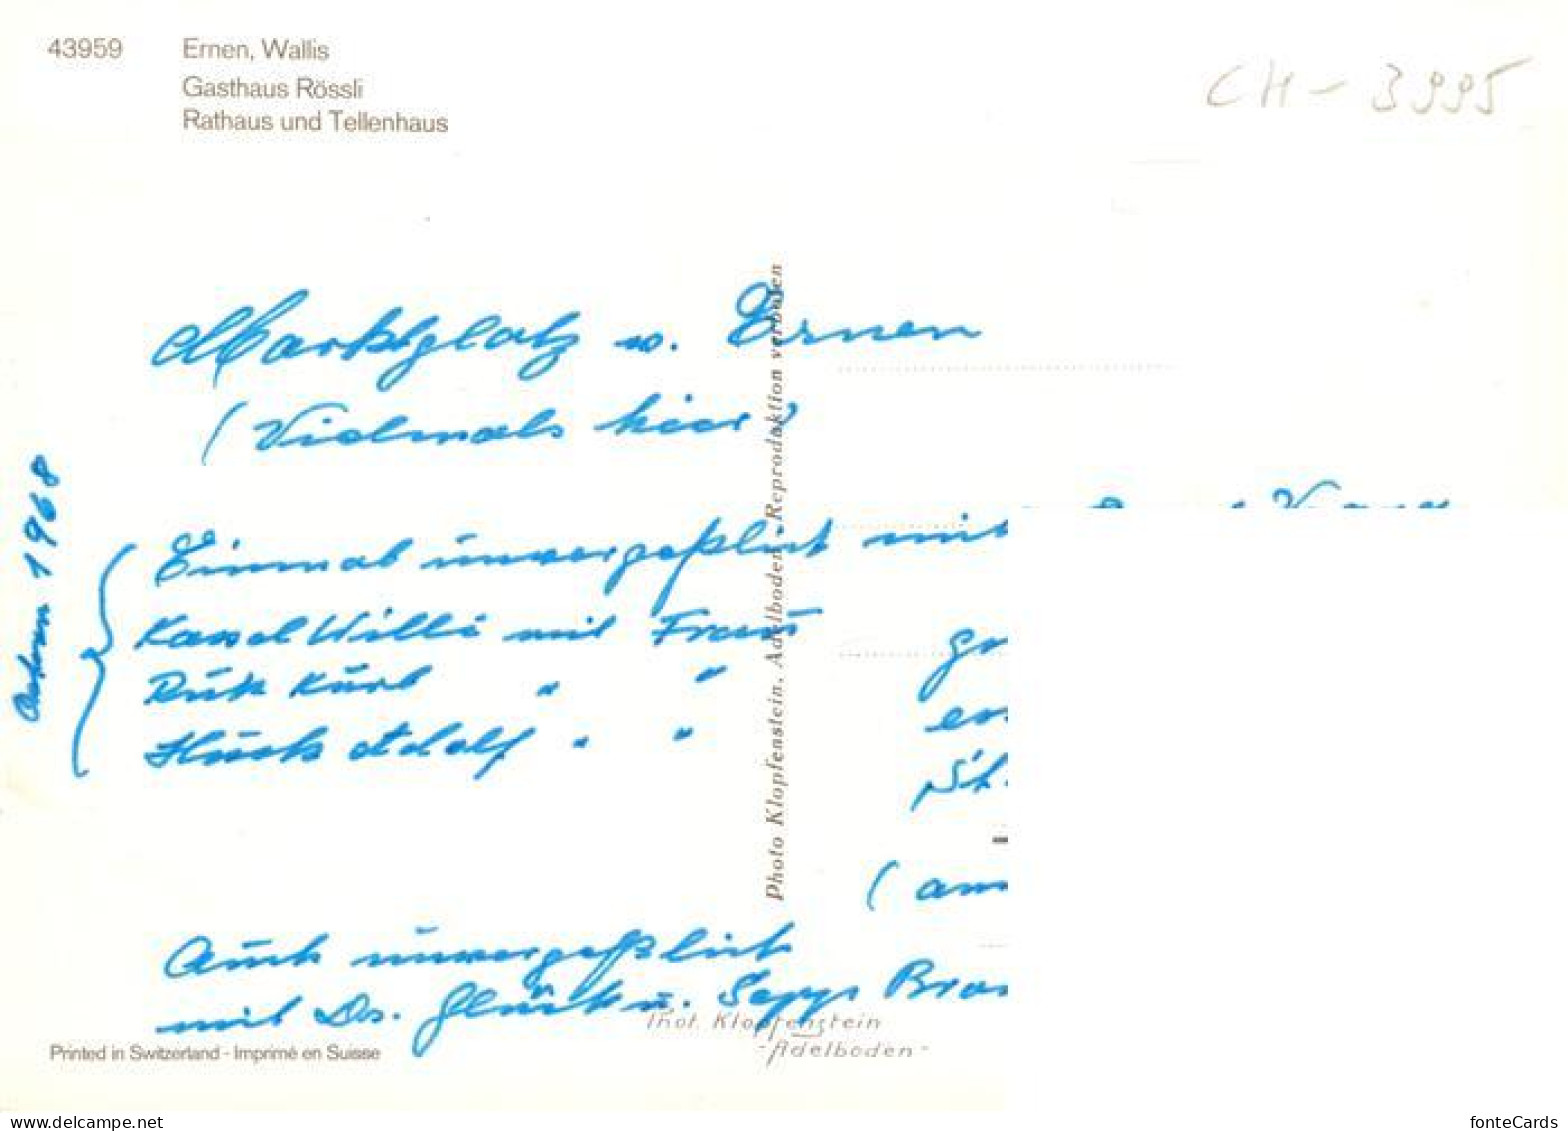 43959 Ernen, Wallis
Gasthaus Rössli
Rathaus und Tellenhaus
CH - 3995
Marktplatz v. Ernen
(Vielmals hier)
Ostern 1968
Einmal unvergeßlich mit
Willi mit Frau
Kurt " "
Adolf " "
Auch unvergeßlich
mit Dr. Glück u. Sepp
Photo Klopfenstein, Adelboden - Reproduktion verboten
Phot. Klopfenstein
- Adelboden -
Printed in Switzerland - Imprimé en Suisse
www.delcampe.net
fonteCards